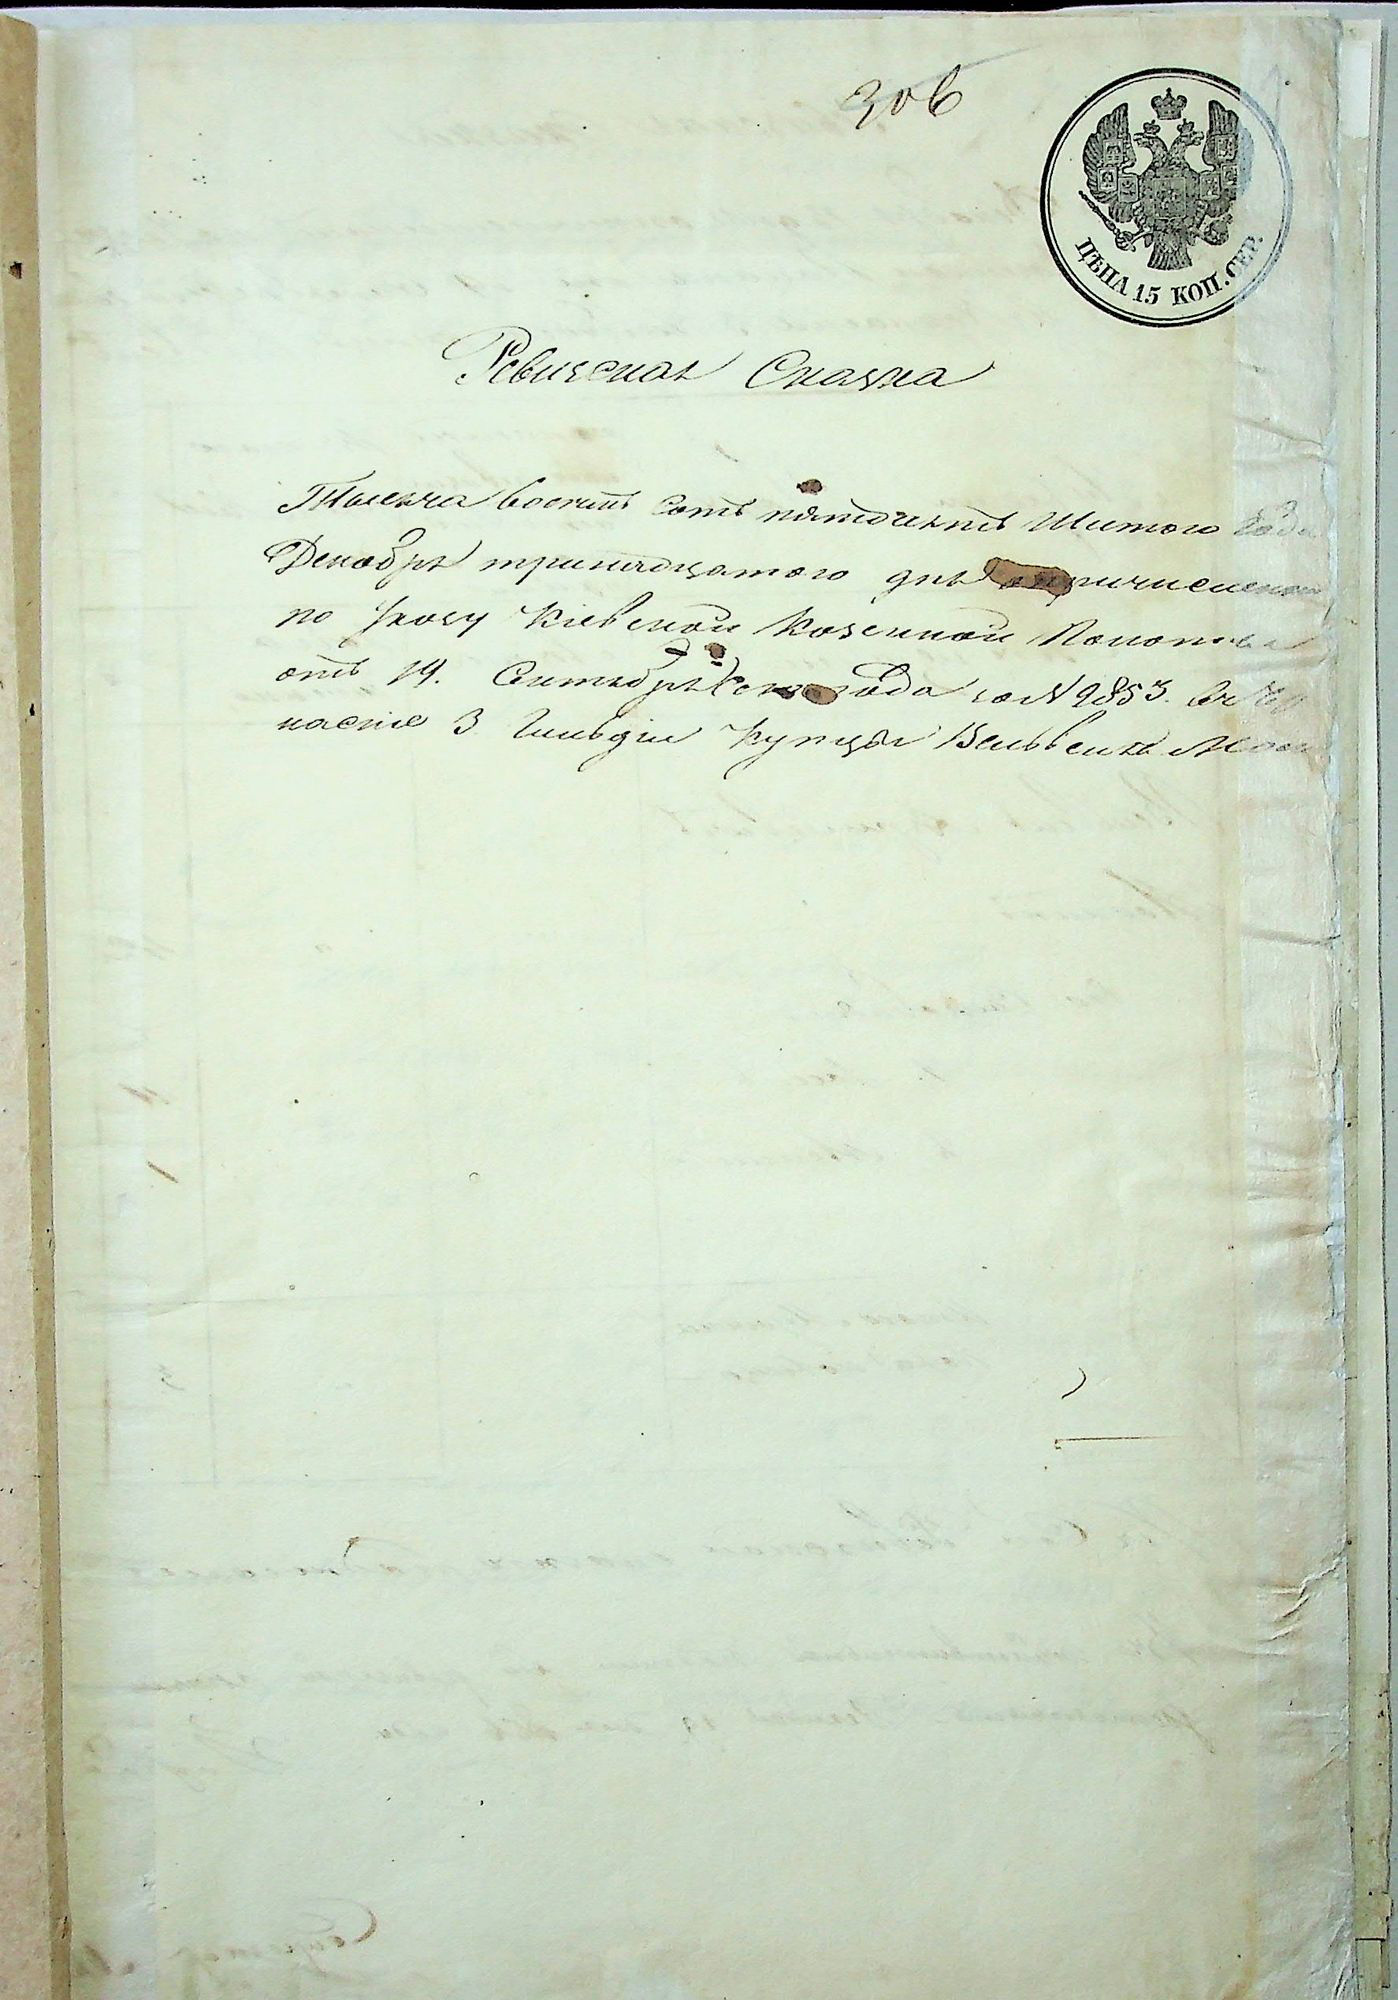 306
ЦѢНА 15 КОП. СЕР.
Ревизская Сказка
Тысеча восемь сотъ пятдесятъ Шистого Года
Декабря тринадцатого дня о причисленом
по Указу Кіевской Казенной Полаты
отъ 19. Сентября сего года за № 9853. въ
каскіе 3 Гильдіи Купцы